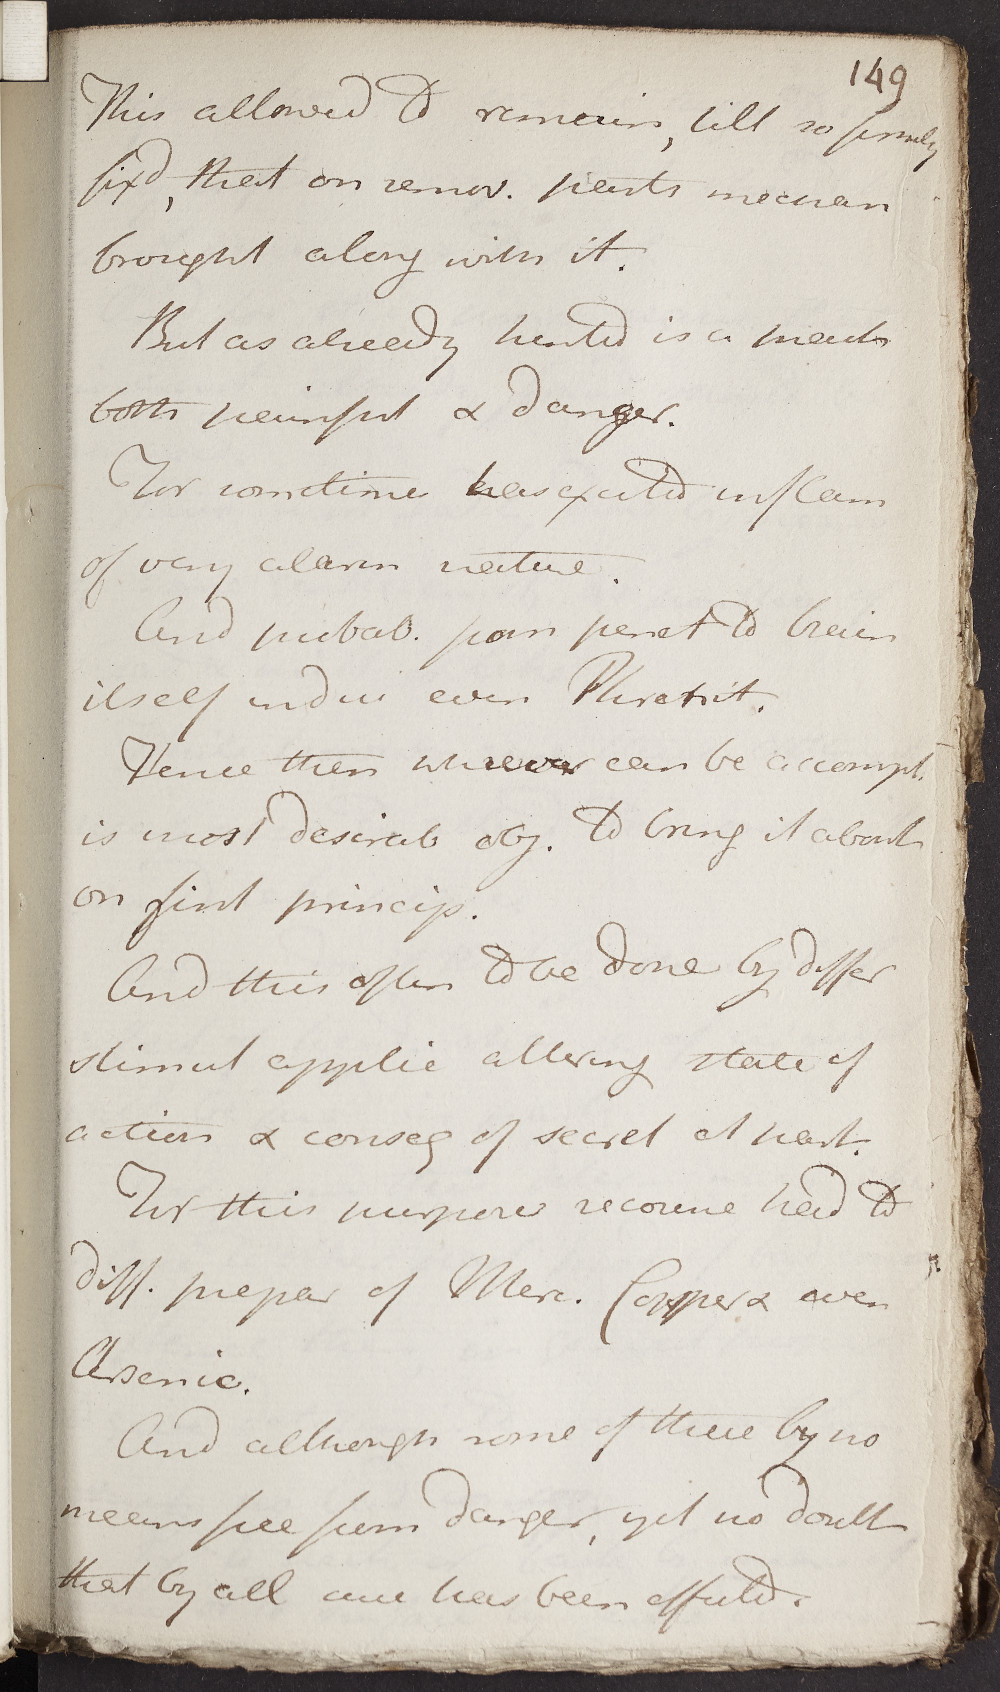 149
This allowed to remain, till so firmly
fixd, that on remov. parts mechan
brought along with it.
But as already hinted is a meath
both painful & danger.
For sometime has excited inflam
of very alarm nature.
And probab. from penet to brain
itself induc even Phrenit.
Hence then wherever can be accompl.
is most desirab obj. to bring it about
on first princip.
And this often to be done by differ
stimul applic altering state of
action & conseq of secret at part.
For this purpose recourse had to
diff. prepar of Merc. Copper & even
Arsenic.
And although some of these by no
means free from danger, yet no doubt
that by all cure has been effected.